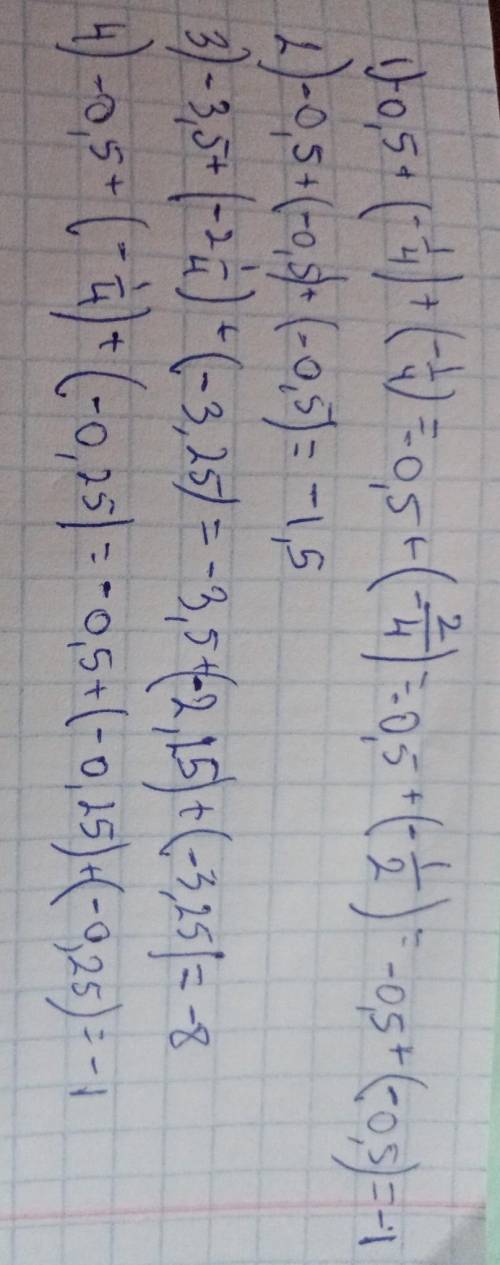 1) -0,5 + (-1/4) + (-1/4) = -0,5 + (-2/4) = -0,5 + (-1/2) = -0,5 + (-0,5) = -1
2) -0,5 + (-0,5) + (-0,5) = -1,5
3) -3,5 + (-2 1/4) + (-3,25) = -3,5 + (-2,25) + (-3,25) = -8
4) -0,5 + (-1/4) + (-0,25) = -0,5 + (-0,25) + (-0,25) = -1